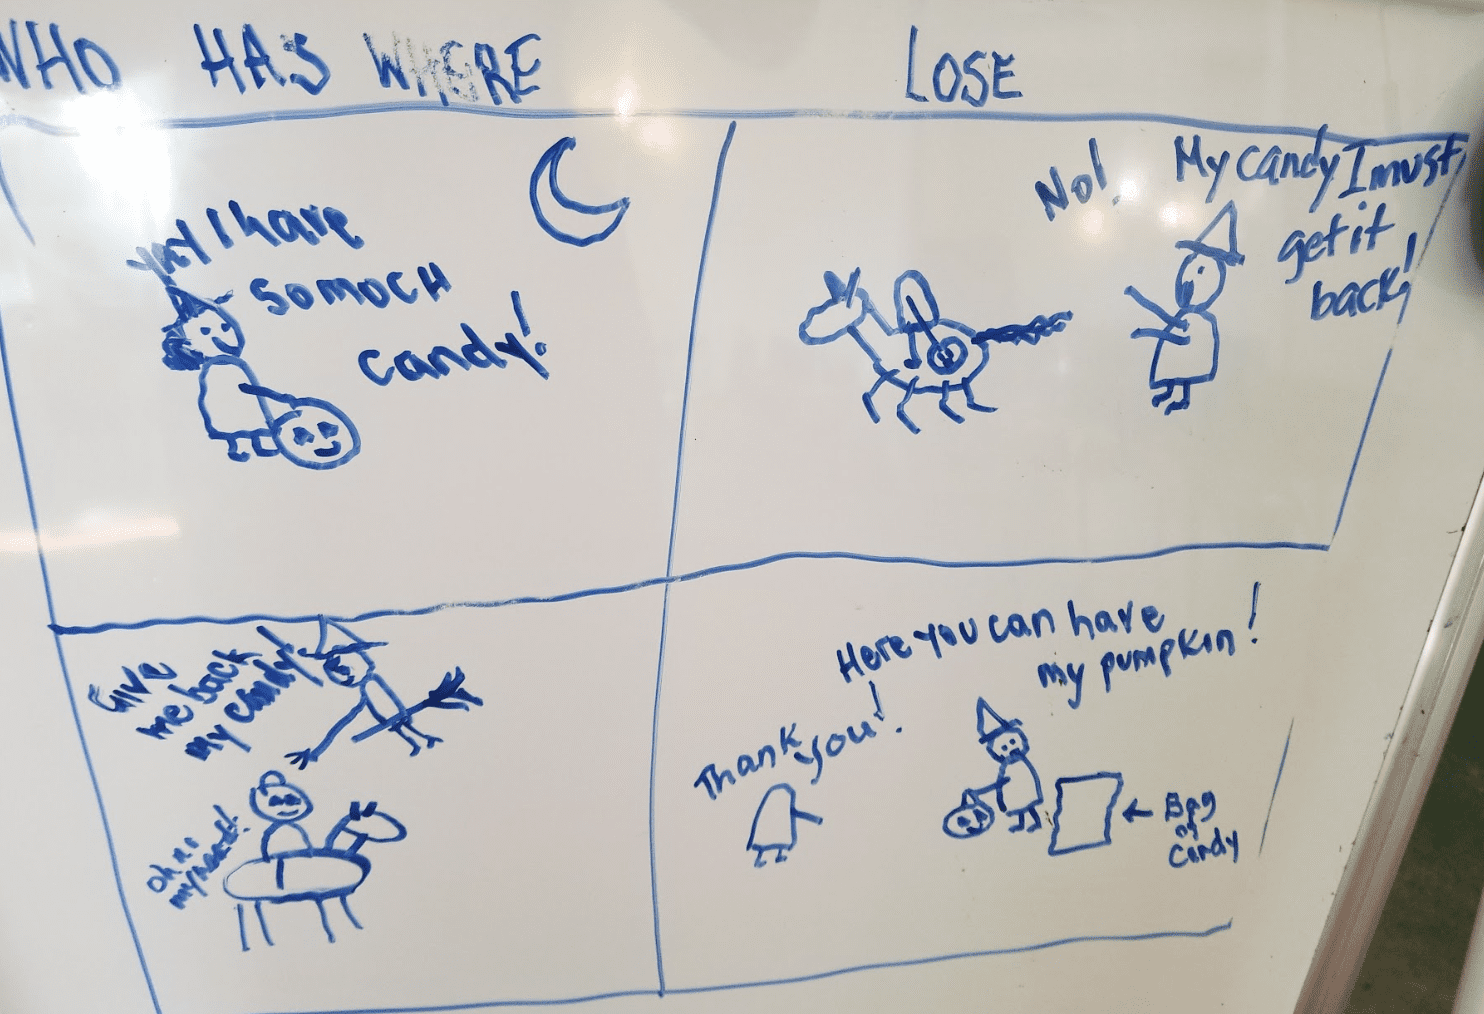 WHO HAS WHERE LOSE
yay I have
so moch
candy!
No! My candy I must
get it
back!
Give
me back
my candy!
oh no
my head!
Here you can have
my pumpkin!
Thank
you!
Bag
of
Candy